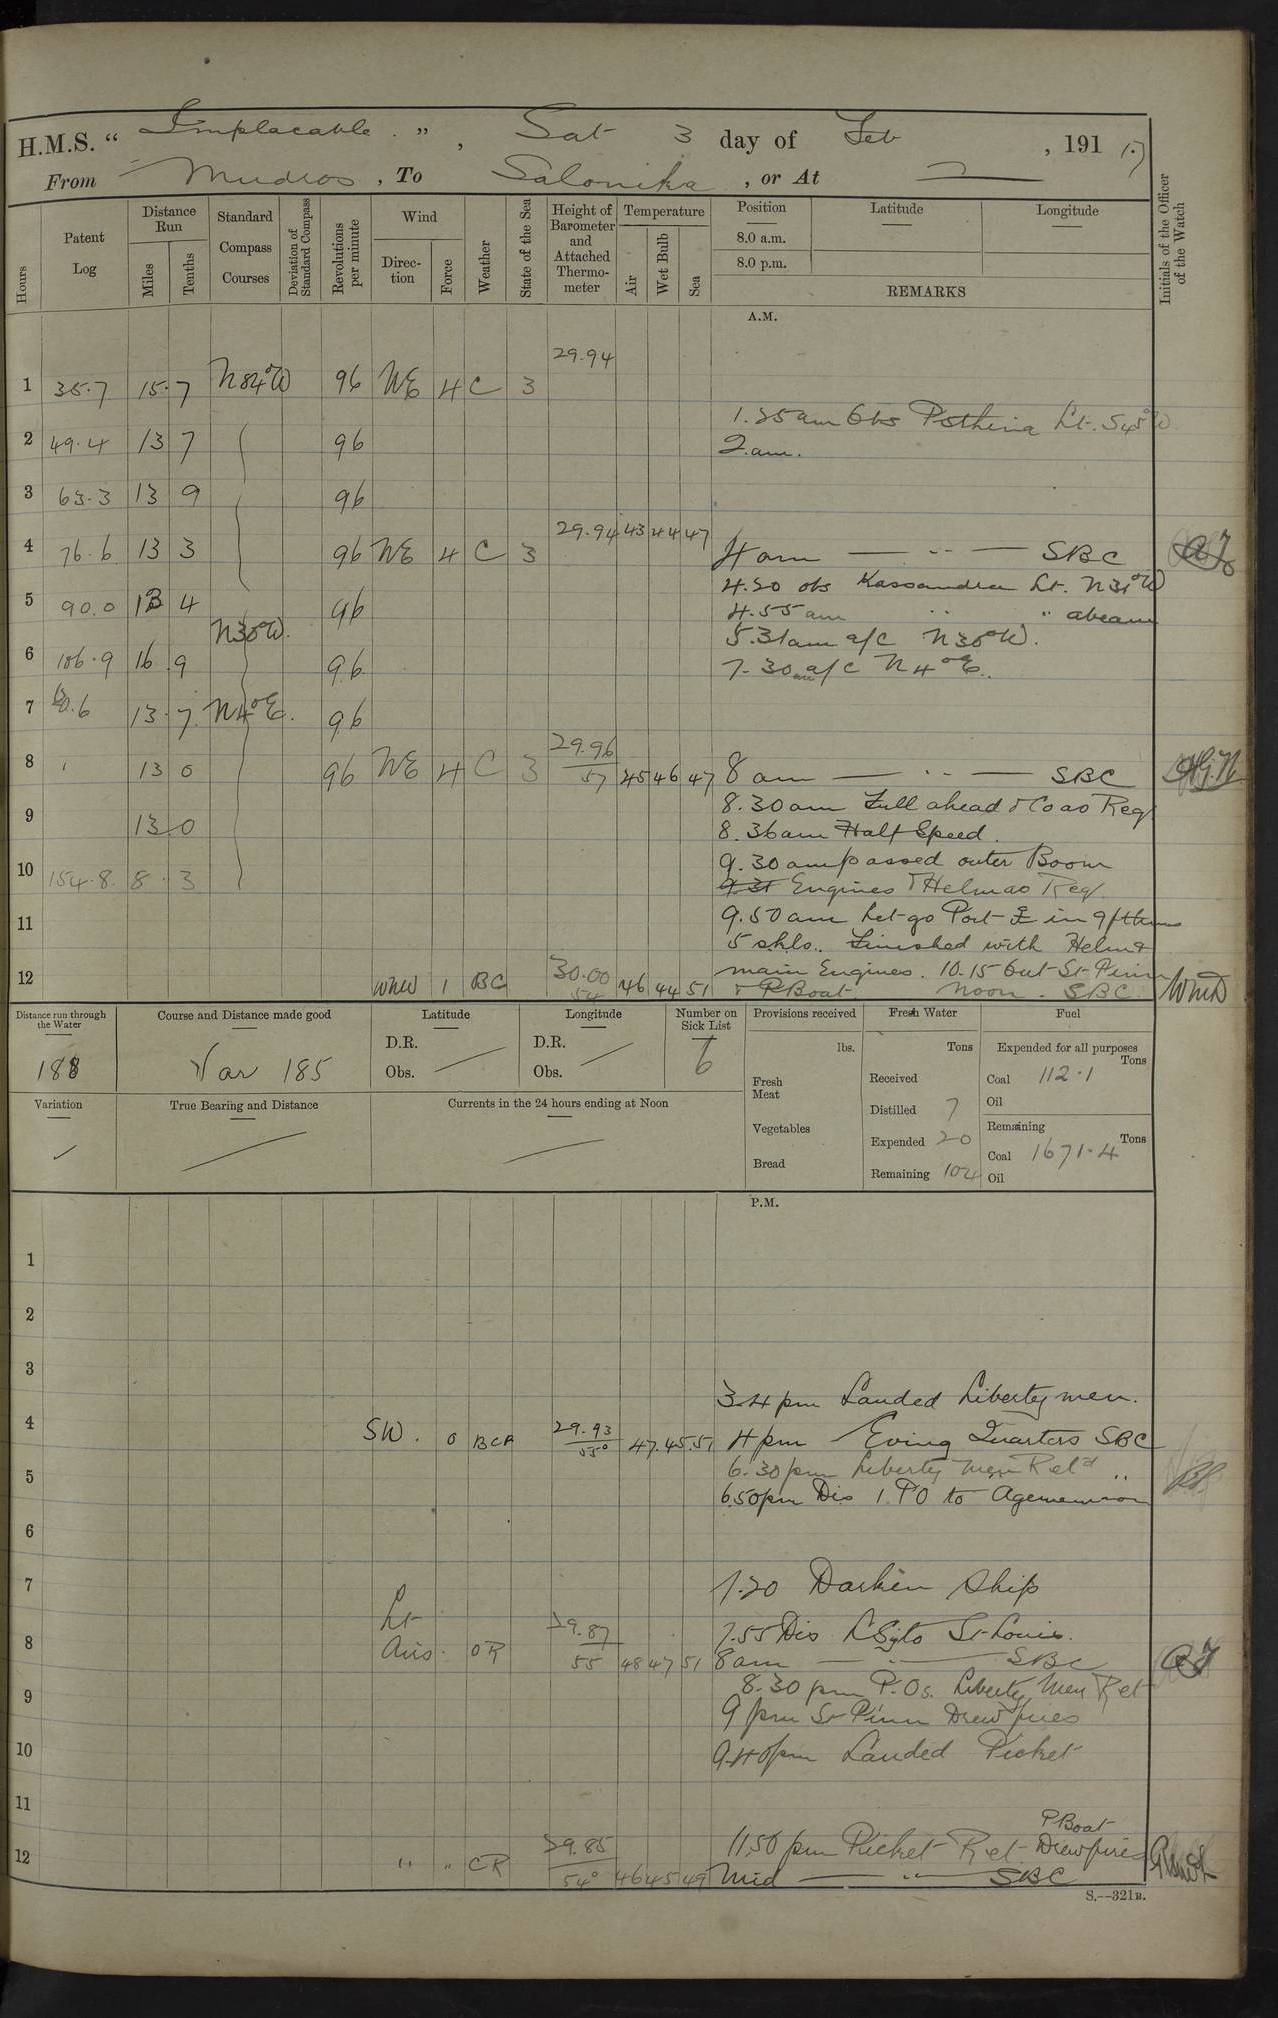 H.M.S. “ Implacable. ” , Sat 3 day of Feb , 191 17
From Mudros , To Salonika , or At —
Hours
Patent Log
Distance Run
Miles
Tenths
Standard Compass Courses
Deviation of Standard Compass
Revolutions per minute
Wind
Direction
Force
Weather
State of the Sea
Height of Barometer and Attached Thermometer
Temperature
Air
Wet Bulb
Sea
Position
8.0 a.m.
8.0 p.m.
Latitude
Longitude
REMARKS
Initials of the Officer of the Watch
A.M.
29.94
1 35.7 15.7 N84°W 96 NE 4 C 3
1.25am Obs Lt. S45°W
2 49.4 13 7 96 2.am.
3 63.3 13 9 96
29.94 43 44 47
4 76.6 13 3 96 NE 4 C 3 4 am — " — SBC
4.20 obs Kassandra Lt. N31°W
5 90.0 13 4 96 4.55am " " abeam
N30°W. 5.31am a/c N30°W.
6 106.9 16.9 96 7.30am a/c N4°E.
7 20.6 13.7 N4°E. 96
29.96
8 13 0 96 NE 4 C 3 57 45 46 47 8 am — " — SBC
8.30am Full ahead & Co as Req
9 13.0 8.36am Half Speed.
9.30 am passed outer Boom
10 154.8. 8.3 9.31 Engines & Helm as Req.
11 9.50am Let go Port in 9 fthms
5 shls. Finished with Helm &
main Engines. 10.15 Out St Pinn
12 WNW 1 BC 30.00 54 46 44 51 & P Boat. Noon. SBC. WMD
Distance run through the Water
188
Course and Distance made good
Var 185
Latitude
D.R.
Obs.
Longitude
D.R.
Obs.
Number on Sick List
6
Provisions received
lbs.
Fresh Meat
Vegetables
Bread
Fresh Water
Tons
Received
Distilled 7
Expended 20
Remaining 104
Fuel
Expended for all purposes
Tons
Coal 112.1
Oil
Remaining
Tons
Coal 1671.4
Oil
Variation
True Bearing and Distance
Currents in the 24 hours ending at Noon
P.M.
1
2
3
3.4 pm Landed Liberty men.
4 SW. 0 BCR 29.93 55° 47. 45. 51 4 pm Evning Quarters SBC
6.30 pm Liberty Men Retd "
5 6.50pm Dis 1. PO to Agememnon
6
7 7.20 Darken Ship
8 Lt Airs. OR 29.87 55 48 47 51 7.55 Dis L Sig to St Louis.
8am — " — SBC
8.30 pm P.Os. Liberty Men Ret
9 9 pm St Pinn Drew fires
10 9.40pm Landed Picket
11
P Boat
12 " " CR 29.85 54° 46 45 49 11.50 pm Picket Ret Drew fires
Mid — " — SBC
S.—321B.